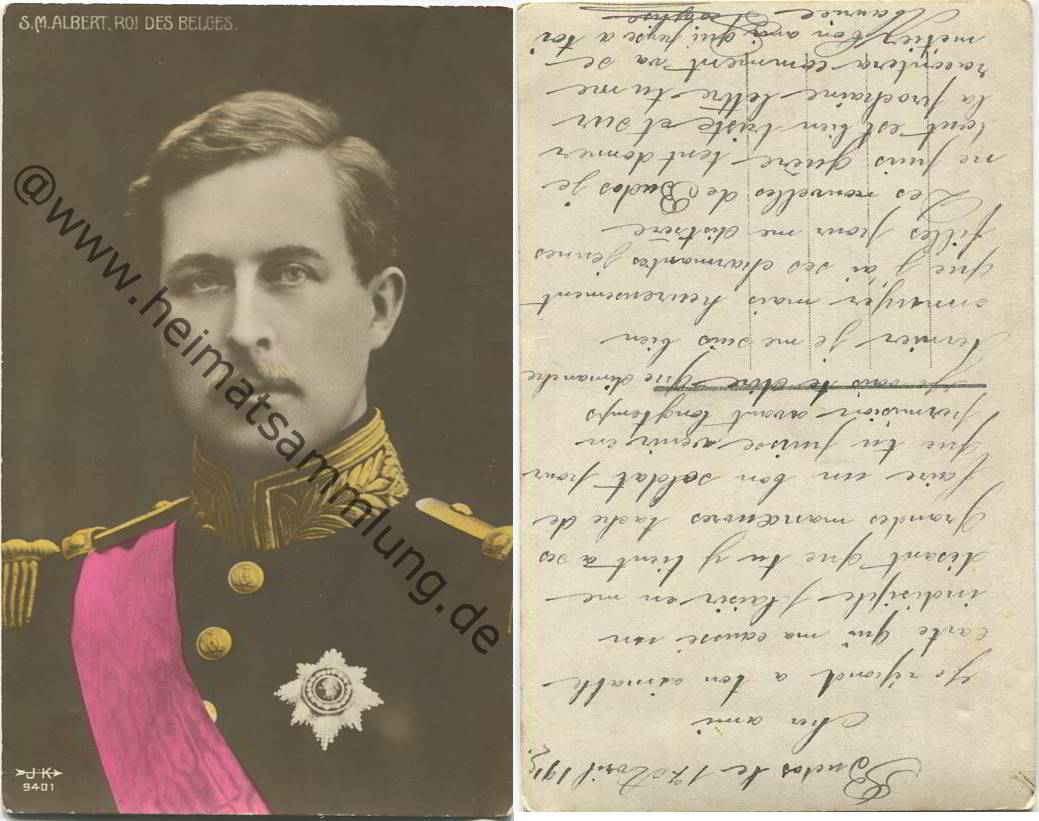 S.M. ALBERT, ROI DES BELGES.
@www.heimatsammlung.de
JK
9401
Budos le 17 Avril 191
Cher ami
Je répond a ton aimable
carte qui ma causé un
indisible plaisir en me
disant que tu y tient a ses
grandes manœuvres tache de
faire un bon soldat pour
que tu puisse venir en
permision avant longtemps
Je vais te dire que dimanche
dernier je me suis bien
ennuyer mais heureusement
que j'ai ses charmantes jeunes
filles pour me distrère
Les nouvelles de Budos je
ne puis guère tent donner
tout est bien triste et sur
la prochaine lettre tu me
racontera comment va se
metier ton ami qui pense a toi
Maurice